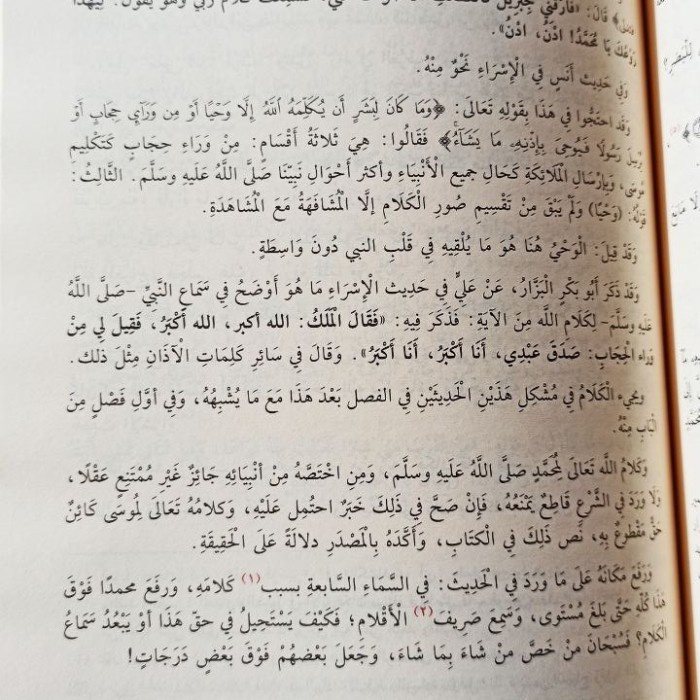 فَارَقَنِي جِبْرِيلُ
رَبِّي وَهُوَ يَقُولُ: لِيَهْدَأْ
رَوْعُكَ يَا مُحَمَّدُ! ادْنُ، ادْنُ».
وَفِي حَدِيثِ أَنَسٍ فِي الْإِسْرَاءِ نَحْوٌ مِنْهُ.
وَقَدِ احْتَجُّوا فِي هَذَا بِقَوْلِهِ تَعَالَى: ﴿وَمَا كَانَ لِبَشَرٍ أَن يُكَلِّمَهُ اللَّهُ إِلَّا وَحْيًا أَوْ مِن وَرَآيِ حِجَابٍ أَوْ
يُرْسِلَ رَسُولًا فَيُوحِيَ بِإِذْنِهِ مَا يَشَآءُ﴾ فَقَالُوا: هِيَ ثَلَاثَةُ أَقْسَامٍ: مِنْ وَرَاءِ حِجَابٍ كَتَكْلِيمِ
مُوسَى، وَبِإِرْسَالِ الْمَلَائِكَةِ كَحَالِ جَمِيعِ الْأَنْبِيَاءِ وَأَكْثَرِ أَحْوَالِ نَبِيِّنَا صَلَّى اللَّهُ عَلَيْهِ وَسَلَّمَ. الثَّالِثُ:
قَوْلُهُ: (وَحْيًا) وَلَمْ يَبْقَ مِنْ تَقْسِيمِ صُوَرِ الْكَلَامِ إِلَّا الْمُشَافَهَةُ مَعَ الْمُشَاهَدَةِ.
وَقَدْ قِيلَ: الْوَحْيُ هُنَا هُوَ مَا يُلْقِيهِ فِي قَلْبِ النبي دُونَ وَاسِطَةٍ.
وَقَدْ ذَكَرَ أَبُو بَكْرٍ الْبَزَّارُ، عَنْ عَلِيٍّ فِي حَدِيثِ الْإِسْرَاءِ مَا هُوَ أَوْضَحُ فِي سَمَاعِ النَّبِيِّ -صَلَّى اللَّهُ
عَلَيْهِ وَسَلَّمَ- لِكَلَامِ اللَّهِ مِنَ الآيَةِ: فَذَكَرَ فِيهِ: «فَقَالَ الْمَلَكُ: الله أكبر، الله أَكْبَرُ، فَقِيلَ لِي مِنْ
وَرَاءِ الْحِجَابِ: صَدَقَ عَبْدِي، أَنَا أَكْبَرُ، أَنَا أَكْبَرُ». وَقَالَ فِي سَائِرِ كَلِمَاتِ الْأَذَانِ مِثْلَ ذلك.
وَيَجِيءُ الْكَلَامُ فِي مُشْكِلِ هَذَيْنِ الْحَدِيثَيْنِ فِي الفصل بَعْدَ هَذَا مَعَ مَا يُشْبِهُهُ، وَفِي أَوَّلِ فَصْلٍ مِنَ
الْبَابِ مِنْهُ.
وَكَلَامُ اللَّهِ تَعَالَى لِمُحَمَّدٍ صَلَّى اللَّهُ عَلَيْهِ وَسَلَّمَ، وَمَنِ اخْتَصَّهُ مِنْ أَنْبِيَائِهِ جَائِزٌ غَيْرِ مُمْتَنِعٍ عَقْلًا،
وَلَا وَرَدَ فِي الشَّرْعِ قَاطِعٌ يَمْنَعُهُ، فَإِنْ صَحَّ فِي ذَلِكَ خَبَرٌ احتُمِل عَلَيْهِ، وَكلامُهُ تَعَالَى لِمُوسَى كَائِنٌ
حَقٌّ مَقْطُوعٌ بِهِ، نَصَّ ذَلِكَ فِي الْكِتَابِ، وَأَكَّدَهُ بِالْمَصْدَرِ دلالةً عَلَى الْحَقِيقَةِ.
وَرَفَعَ مَكَانَهُ عَلَى مَا وَرَدَ فِي الْحَدِيثَ: فِي السَّمَاءِ السَّابعةِ بسبب (١) كَلَامِهِ، وَرَفَعَ محمدًا فَوْقَ
هَذَا كُلِّهِ حَتَّى بَلَغَ مُسْتَوًى، وَسَمِعَ صَرِيفَ (٢) الْأَقْلَامِ؛ فَكَيْفَ يَسْتَحِيلُ فِي حقّ هَذَا أَوْ يَبْعُدُ سَمَاعُ
الْكَلَامِ؟ فَسُبْحَانَ مَنْ خَصَّ مَنْ شَاءَ بِمَا شَاءَ، وَجَعَلَ بَعْضَهُمْ فَوْقَ بَعْضٍ دَرَجَاتٍ!